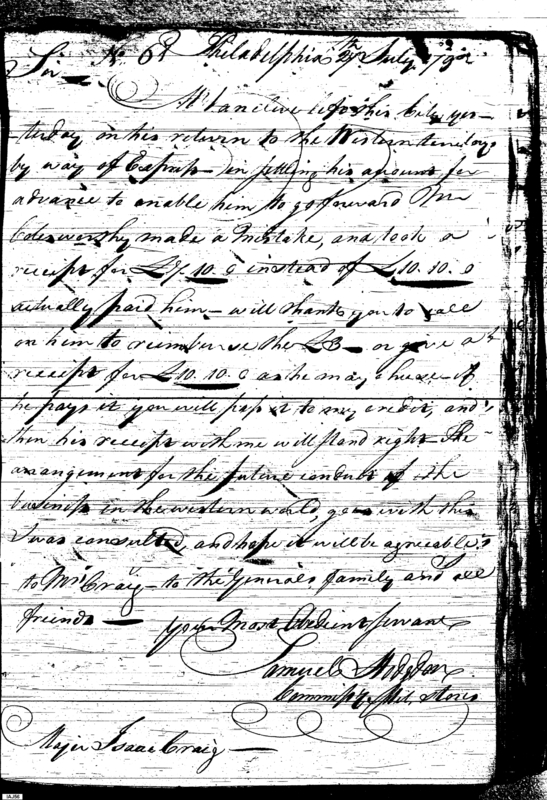 Sir No. 62 Philadelphia 27th July 1792
left this City yes-
terday on his return to the Western territory
by way of Express - in settling his account for
advance to enable him to go forward Mr
Colesworthy made a mistake, and took a
receipt for £7.10.0 instead of £10.10.0
actually paid him - will thank you to call
on him to reimburse the £3 - or give a
receipt for £10.10.0 as he may choose - if
he pays it you will pass it to my credit, and
then his receipt with me will stand right The
arrangement for the future conduct of the
business in the western world, goes with this
I was consulted, and hope it will be agreeable
to Mrs Craig - to the Generals family and all
friends -
Your Most Obedient Servant
Samuel Hodgdon
Commissy Mil. Stores
Major Isaac Craig -
IAJ66